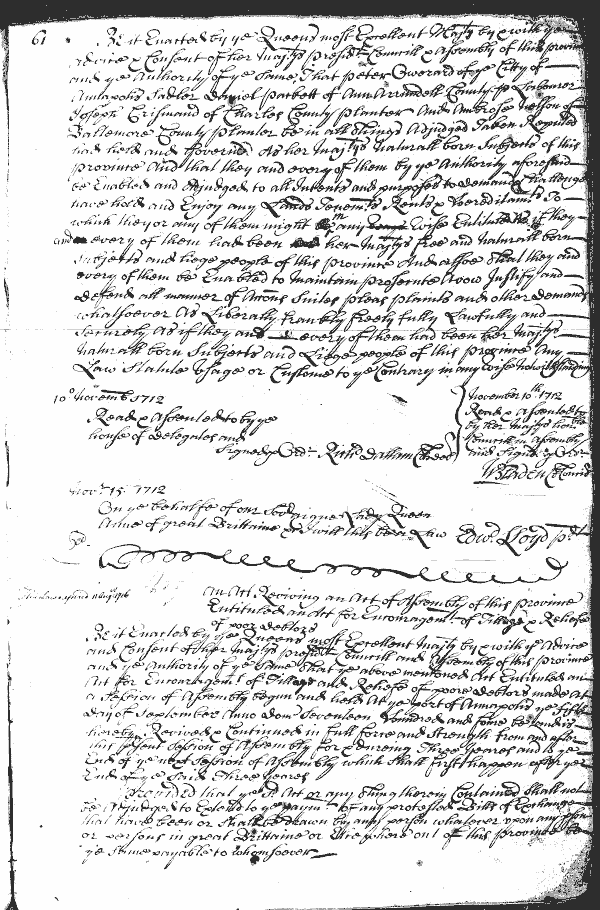 61
Be it Enacted by ye Queens most Excellent Majty by & with ye
advice & Consent of her Majtys Presidt Councill & Assembly of this province
and ye Authority of ye Same That peter Overard of ye City of
Annapolis Sadler Daniel parbett of Ann Arrundell County
Joseph of Charles County planter And Ambrose Nelson of
Baltemore County planter be in all things Adjudged Taken Reputed
had held and Governed As her Majtys Naturall born Subjects of this
province And that they and every of them by ye Authority aforesaid
be Enabled and Adjudged to all Intents and purposes to demand Challenge
have hold and Enjoy any Lands Tenemts Rents & Hereditamts To
which they or any of them might in any Wise Entituled as if they
and every of them had been her Majtys free and naturall born
Subjects and liege people of this province And allsoe That they and
every of them be Enabled to Maintain prosecute Avow Justify and
defend all manner of Acons Suites pleas plaints and other demands
whatsoever As Liberally frankly freely fully Lawfully and
Securely As if they and every of them had been her Majtys
naturall born Subjects and Liege people of this province Any
Law Statute Usage or Custome to ye Contrary in any wise Notwithstanding
10o Novemb 1712
Read & Assented to by ye
house of delegates and
Signed p Ordr Richd Dallam
November 10th 1712
Read & Assented to
by her Majtys honble
Councill in Assembly
and Signed p Ordr
W Bladen Cl Councl
Novr 15 1712
On ye behalfe of our Soveraigne Lady Queen
Anne of great Brittaine &c I will this be a Law Edwd Lloyd pdt
An Act Reviving an Act of Assembly of this province
Entituled an Act for Encouragemt of Tillage & Reliefe
of poor debtors
Be it Enacted by ye Queens most Excellent Majty by & with ye Advice
and Consent of her Majtys presidt Councill and Assembly of this province
and ye Authority of ye Same That ye above mentioned Act Entituled an
Act for Encouragemt of Tillage and Reliefe of poore debtors made At
a Session of Assembly begun and held At ye port of Annapolis ye fifth
day of September Anno Dom Seventeen Hundred and four be and is
hereby Revived & Continued in full force and Strength from and after
this present Session of Assembly for & dureing Three Yeares and to ye
End of ye next Session of Assembly which Shall first happen after ye
End of ye Said Three Yeares
Provided that ye sd Act or any thing therein Contained Shall not
be Adjudged to Extend to ye paymt of any protested Bills of Exchange
that have been or Shall be drawn by any person whatever upon any person
or persons in great Brittaine or Elsewhere out of this province be
ye Same payable to whomsoever